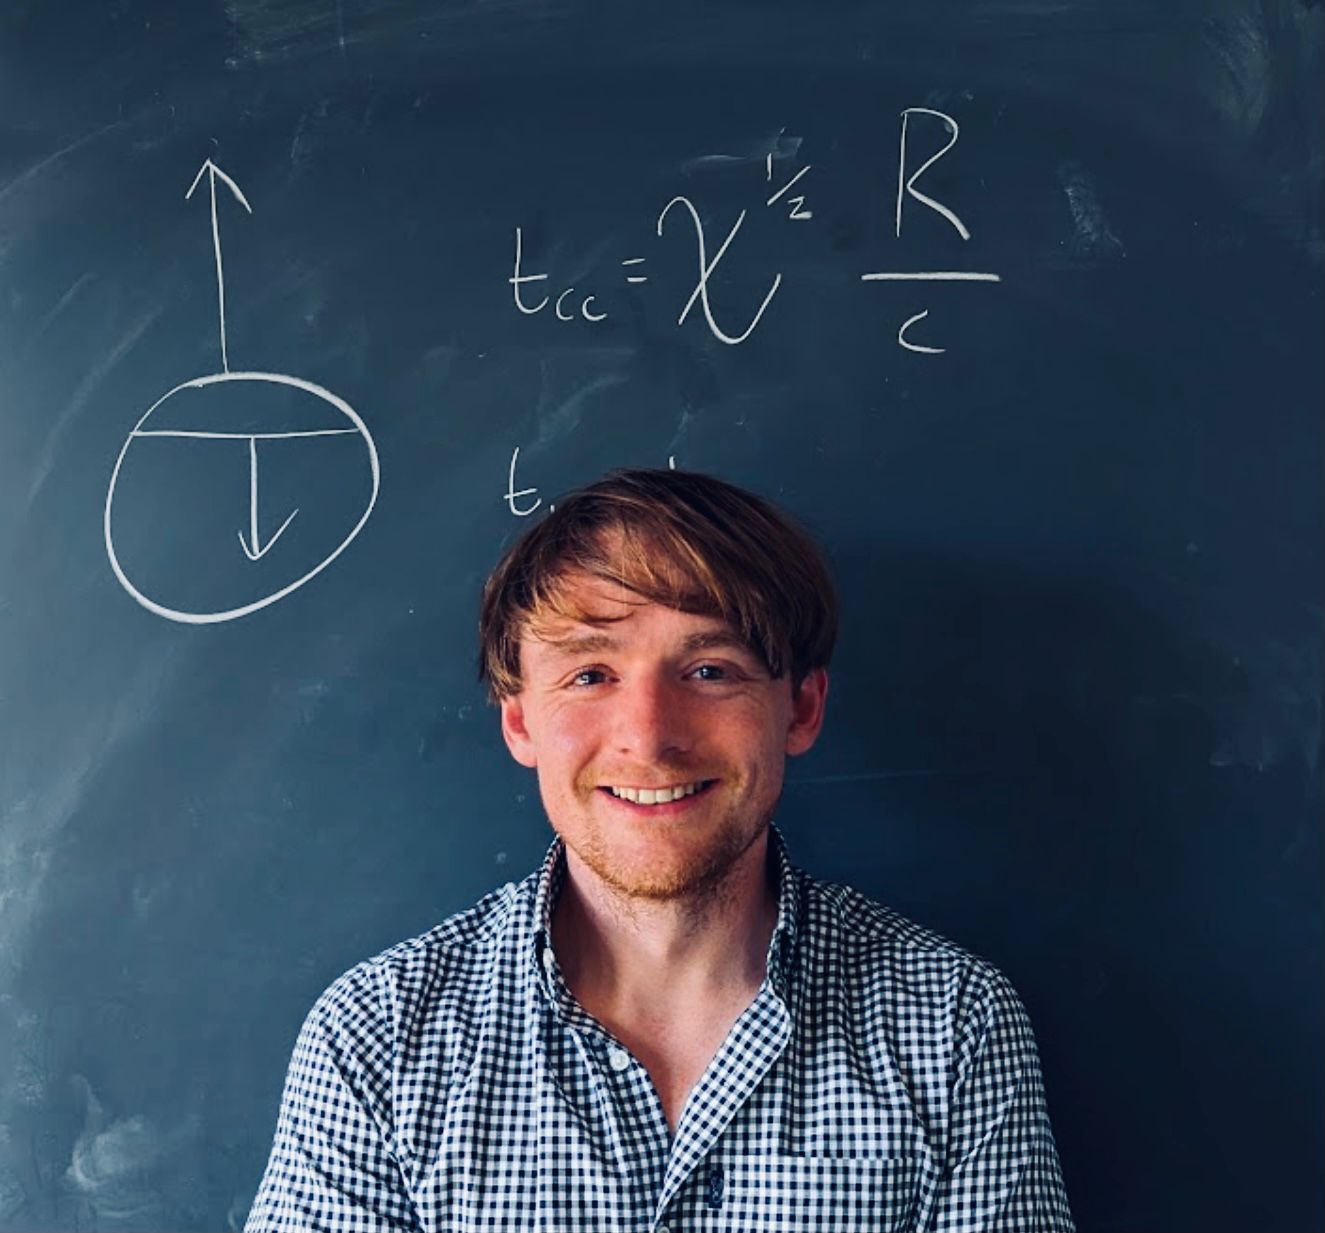 t_cc = χ^1/2 R/c
t